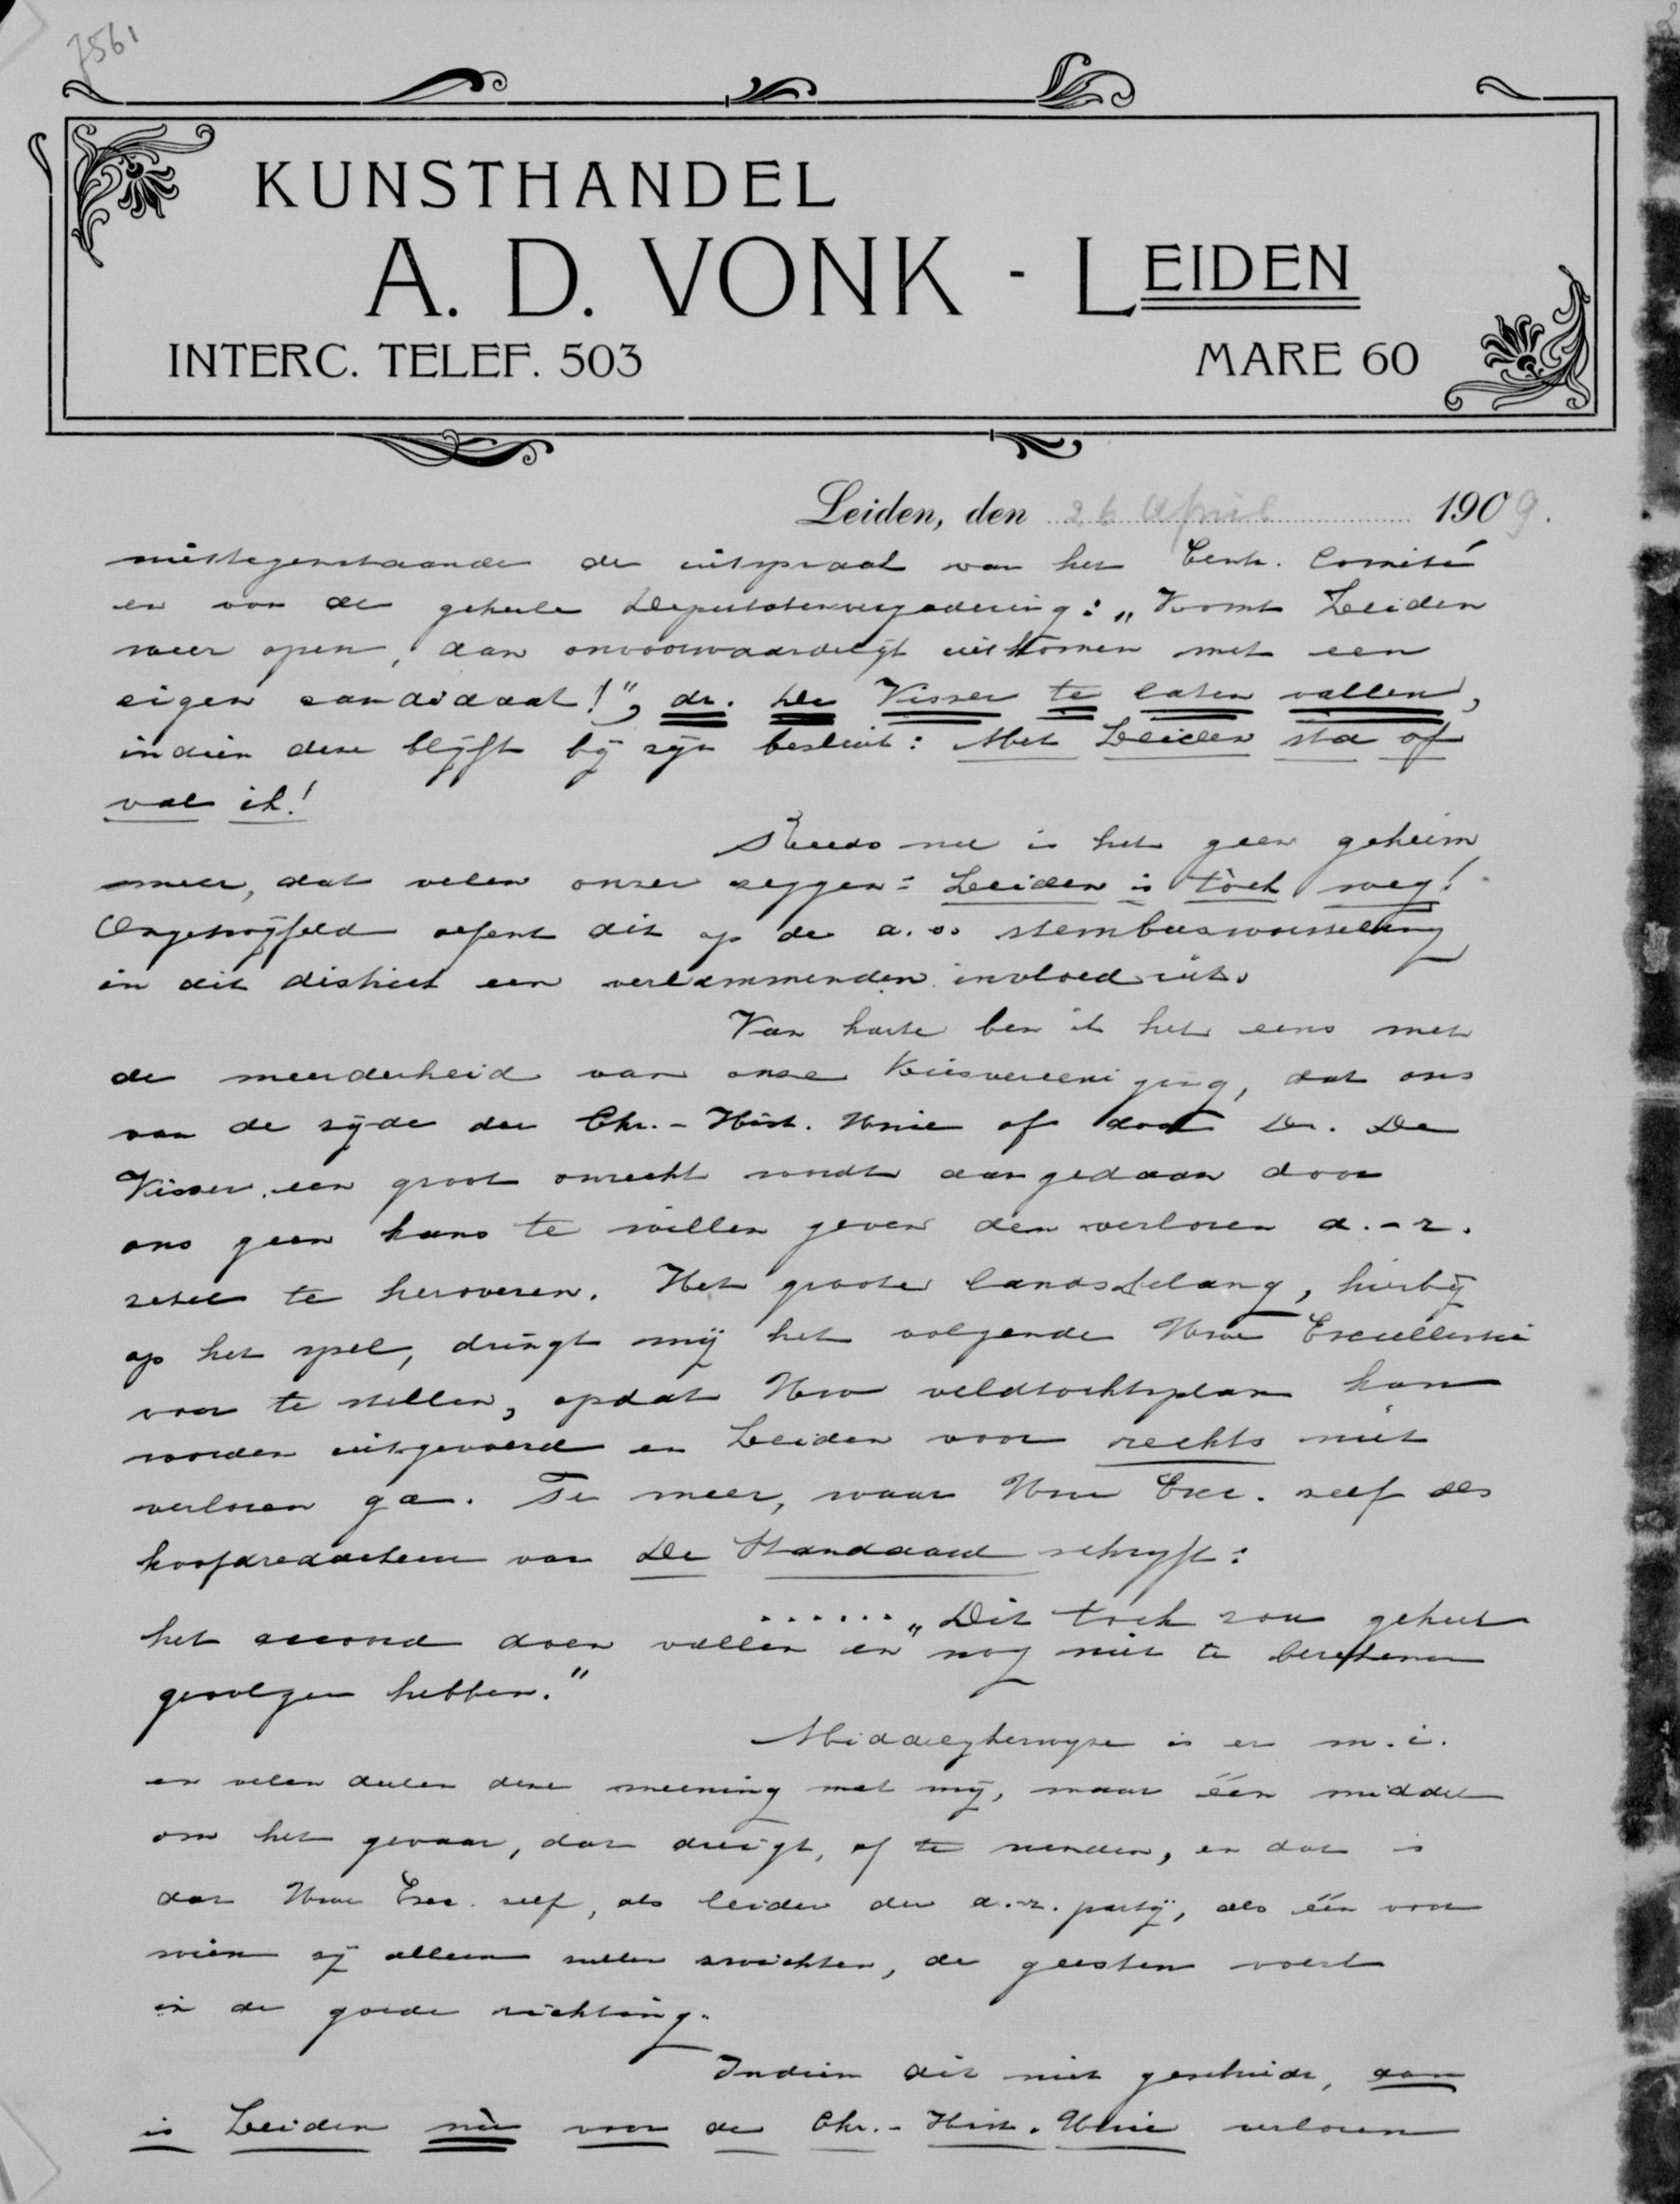 7561
KUNSTHANDEL
A. D. VONK - LEIDEN
INTERC. TELEF. 503 MARE 60
Leiden, den 26 April 1909.
niettegenstaande de uitspraak van het Centr. Comité
en van de geheele Deputatenvergadering: „Komt Leiden
weer open, dan onvoorwaardelijk uitkomen met een
eigen candidaat!", dr. De Visser te laten vallen,
indien deze blijft bij zijn besluit: Met Leiden sta of
val ik!
Reeds nu is het geen geheim
meer, dat velen onzer zeggen: Leiden is tòch weg!
Ongetwijfeld oefent dit op de a.s. stembusworsteling
in dit district een verlammenden invloed uit.
Van harte ben ik het eens met
de meerderheid van onze Kiesvereeniging, dat ons
van de zijde der Chr.-Hist. Unie of door Dr. De
Visser een groot onrecht wordt aangedaan door
ons geen kans te willen geven den verloren a.-r.
zetel te heroveren. Het groote landsbelang, hierbij
op het spel, dringt mij het volgende Uwe Excellentie
voor te stellen, opdat Uw veldtochtsplan kan
worden uitgevoerd en Leiden voor rechts niet
verloren ga. Te meer, waar Uwe Exc. zelf als
hoofdredacteur van De Standaard schrijft:
...... „Dit toch zou geheel
het accoord doen vallen en nog niet te berekenen
gevolgen hebben."
Middelijkerwijze is er m.i.
en velen deelen deze meening met mij, maar één middel
om het gevaar, dat dreigt, af te wenden, en dat is
dat Uwe Exc. zelf, als leider der a.-r. partij, als één voor
wien zij alleen zullen zwichten, de geesten voert
in de goede richting.
Indien dit niet geschiedt, dan
is Leiden nù voor de Chr.-Hist. Unie verloren